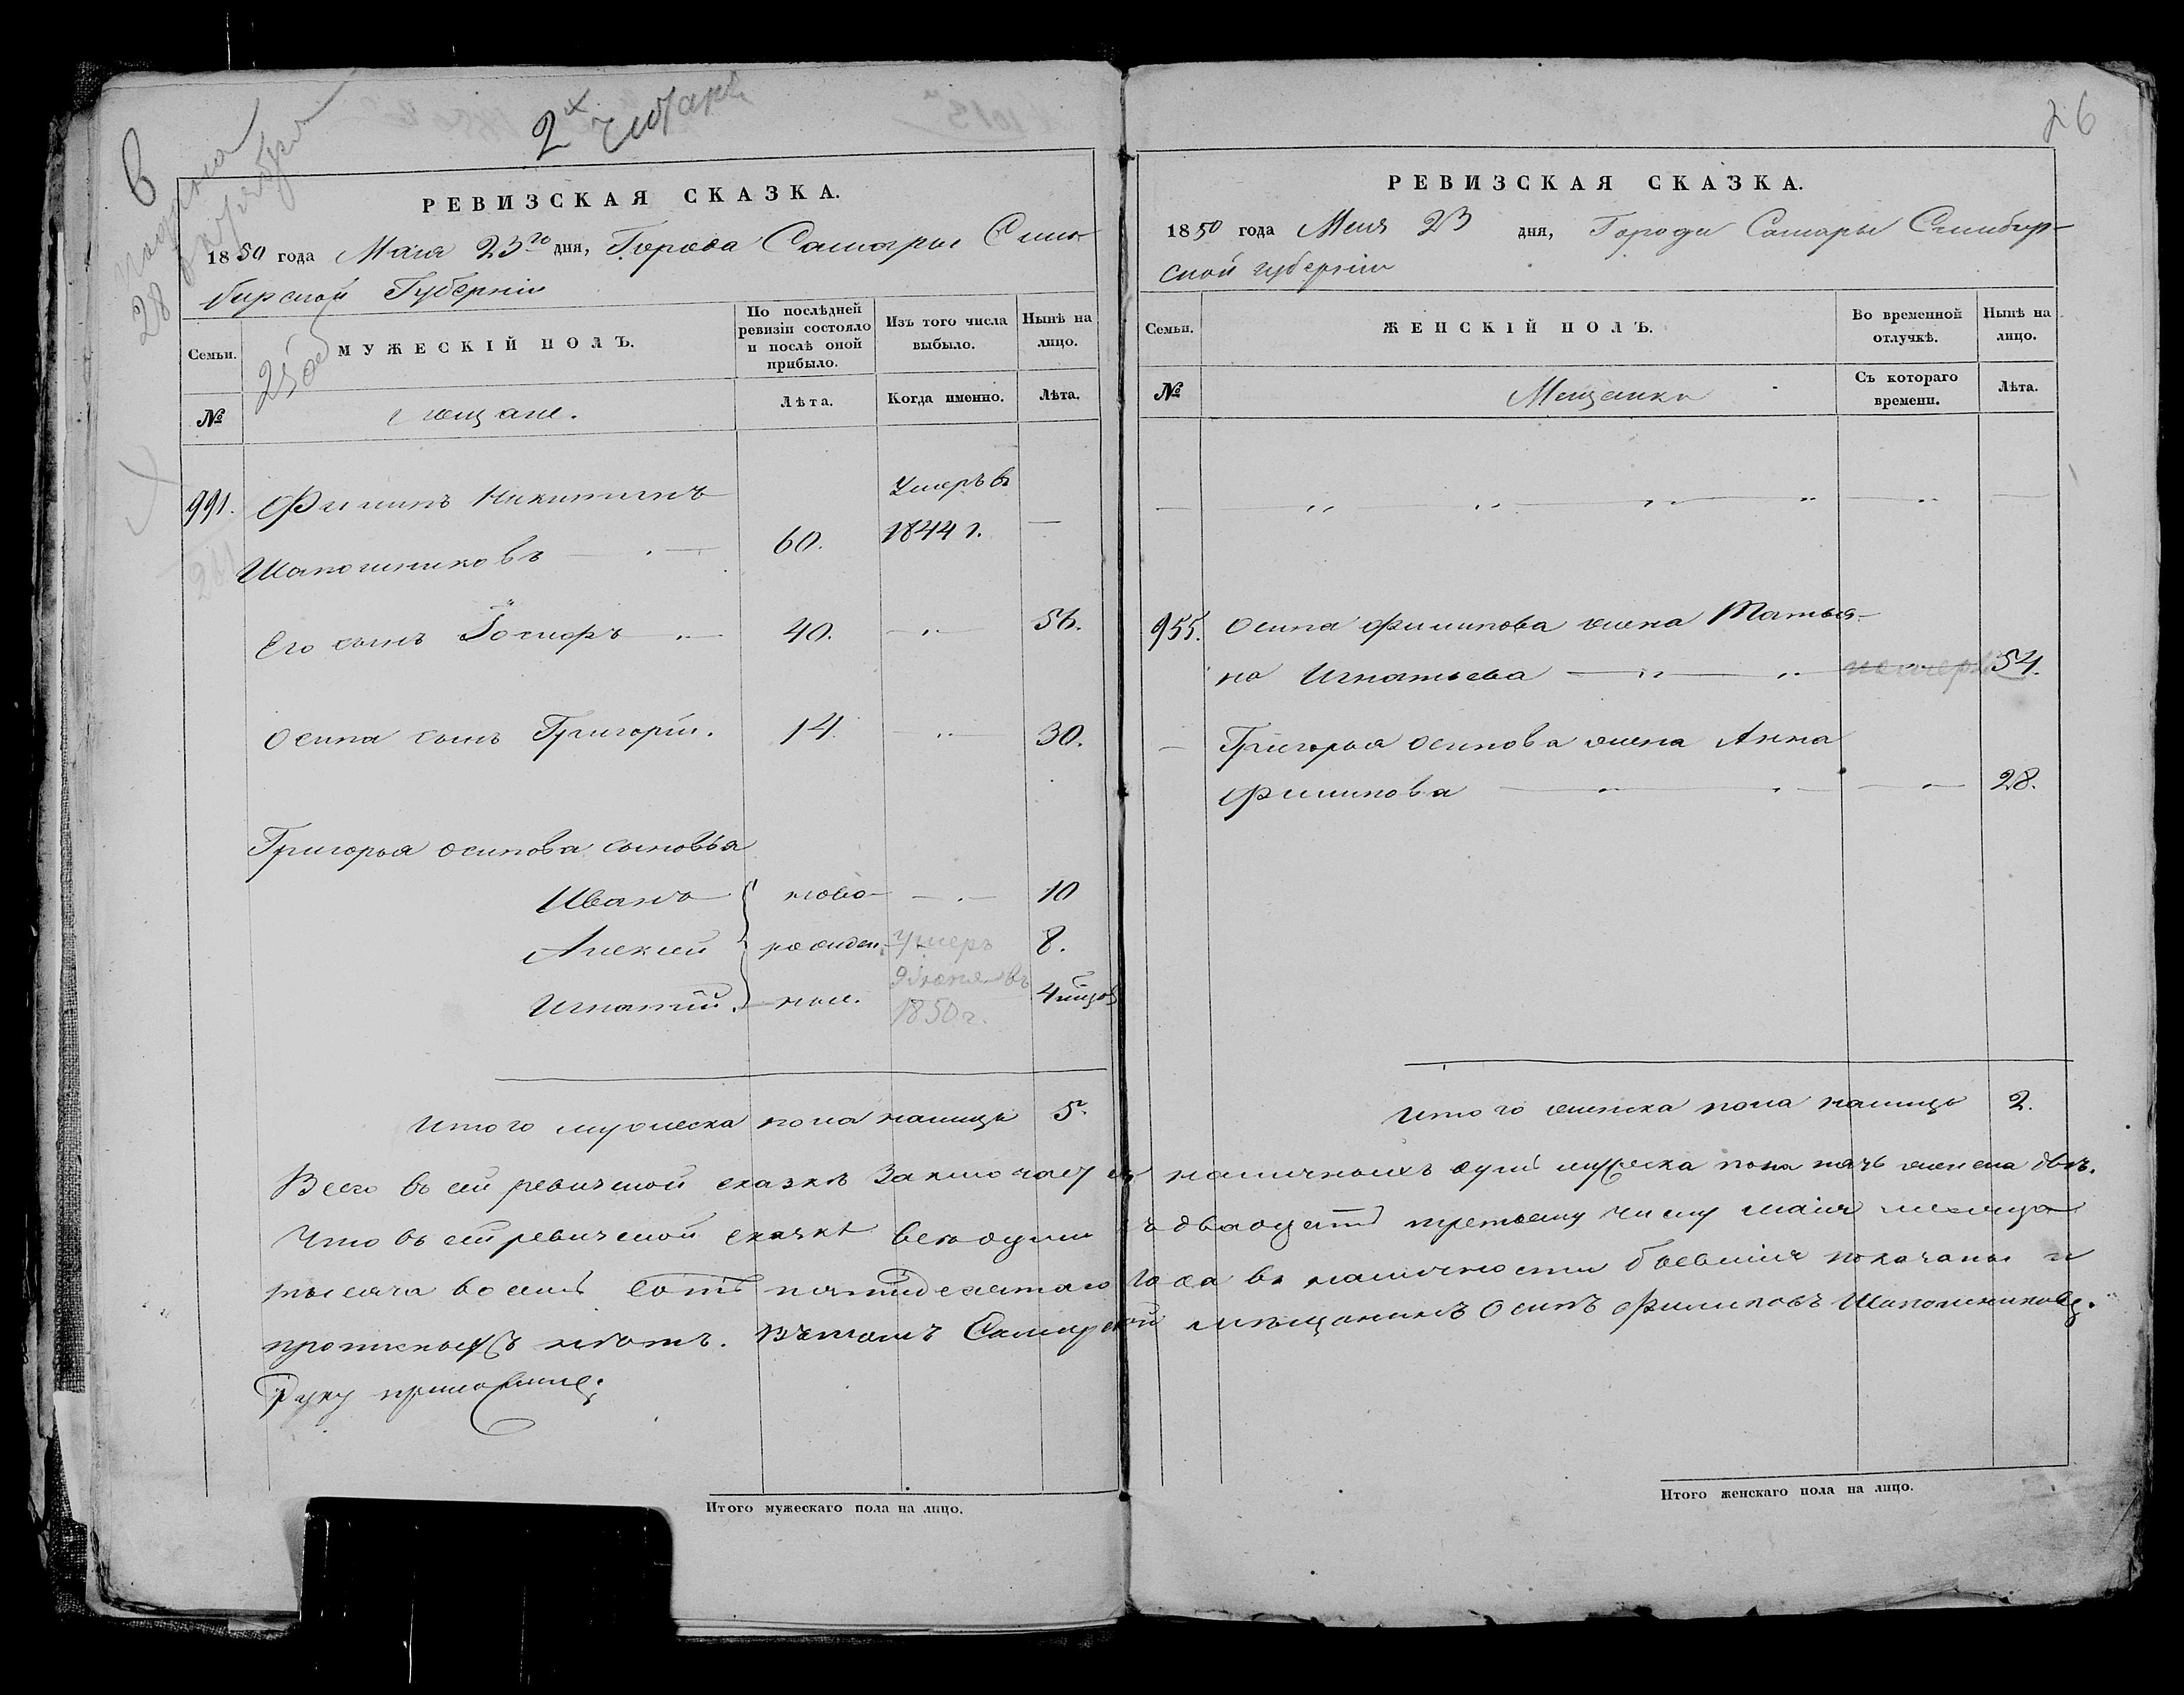 6
2х
РЕВИЗСКАЯ СКАЗКА.
1850 года Маія 23го дня, Города Самары Симбирской Губерніи
Семьи.
МУЖЕСКІЙ ПОЛЪ.
По послѣдней ревизіи состояло и послѣ оной прибыло.
Изъ того числа выбыло.
Нынѣ на лицо.
№
мещане.
Лѣта.
Когда именно.
Лѣта.
991. Филипъ Никитинъ Умеръ въ
Шапошниковъ 60. 1844 г.
Его сынъ Іосифъ 40. 56.
Осипа сынъ Григорій. 14. 30.
Григорья Осипова сыновья
Иванъ ново- 10
Алексей рожден- умеръ 8.
Игнатій. ные. 1850 г.
Итого мужеска пола налицо 5.
Итого мужескаго пола на лицо.
26
РЕВИЗСКАЯ СКАЗКА.
1850 года Маія 23 дня, Города Самары Симбир-
ской губерніи
Семьи.
ЖЕНСКІЙ ПОЛЪ.
Во временной отлучкѣ.
Нынѣ на лицо.
№
Мещанки
Съ котораго времени.
Лѣта.
955. Осипа Филипова жена Татья-
на Игнатьева 54.
Григорья Осипова жена Анна
Филипова 28.
Итого женска пола налицо 2.
Всего въ сей ревизской сказкѣ заключается наличныхъ душъ мужеска пола пять женска двѣ.
Что въ сей ревизской сказкѣ все души къ двадцать третьему числу маія месяца
тысяча восемь сотъ пятидесятаго года въ наличности бывшия показаны и
прописныхъ нѣтъ. Въ томъ Самарской мѣщанинъ Осипъ Филиповъ Шапошниковъ.
Руку приложилъ
Итого женскаго пола на лицо.